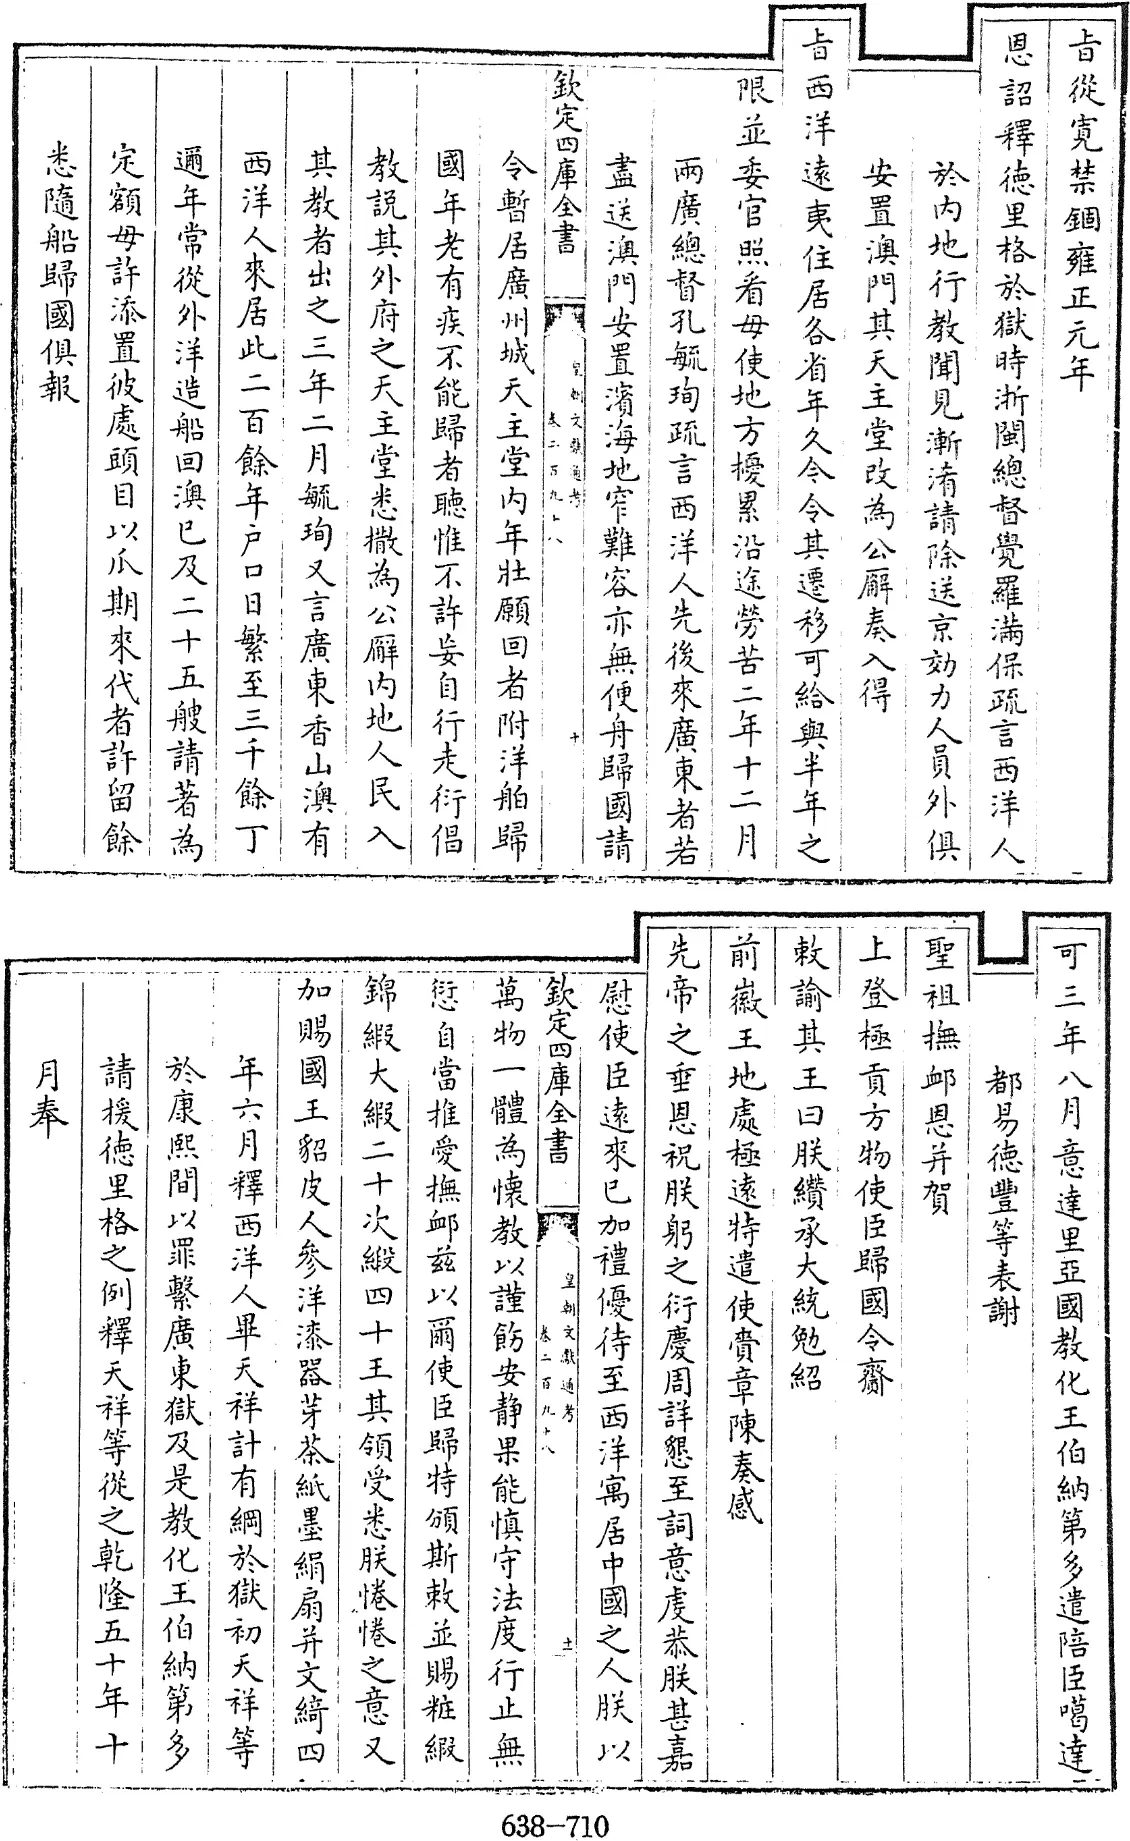 旨從寛禁錮雍正元年
恩詔釋徳里格於獄時浙閩總督覺羅滿保疏言西洋人
於内地行教聞見漸淆請除送京効力人員外俱
安置澳門其天主堂改為公廨奏入得
旨西洋逺夷住居各省年久今令其遷移可給與半年之
限並委官照看毋使地方擾累沿途勞苦二年十二月
兩廣總督孔毓珣疏言西洋人先後來廣東者若
盡送澳門安置濱海地窄難容亦無便舟歸國請
欽定四庫全書
皇朝文獻通考
卷二百九十八
十
令暫居廣州城天主堂内年壯願回者附洋舶歸
國年老有疾不能歸者聽惟不許妄自行走衍倡
教説其外府之天主堂悉撤為公廨内地人民入
其教者出之三年二月毓珣又言廣東香山澳有
西洋人來居此二百餘年户口日繁至三千餘丁
邇年常從外洋造船回澳已及二十五艘請著為
定額毋許添置彼處頭目以瓜期來代者許留餘
悉隨船歸國俱報
可三年八月意達里亞國教化王伯納第多遣陪臣噶達
都易徳豐等表謝
聖祖撫䘏恩并賀
上登極貢方物使臣歸國令齎
敕諭其王曰朕纘承大統勉紹
前徽王地處極逺特遣使賫章陳奏感
先帝之垂恩祝朕躬之衍慶周詳懇至詞意虔恭朕甚嘉
慰使臣逺來已加禮優待至西洋寓居中國之人朕以
欽定四庫全書
皇朝文獻通考
卷二百九十八
十一
萬物一體為懐教以謹飭安静果能慎守法度行止無
愆自當推愛撫䘏兹以爾使臣歸特頒斯敕並賜粧緞
錦緞大緞二十次緞四十王其領受悉朕惓惓之意又
加賜國王貂皮人參洋漆器芽茶紙墨絹扇并文綺四
年六月釋西洋人畢天祥計有綱於獄初天祥等
於康熙間以罪繫廣東獄及是教化王伯納第多
請援徳里格之例釋天祥等從之乾隆五十年十
月奉
638-710